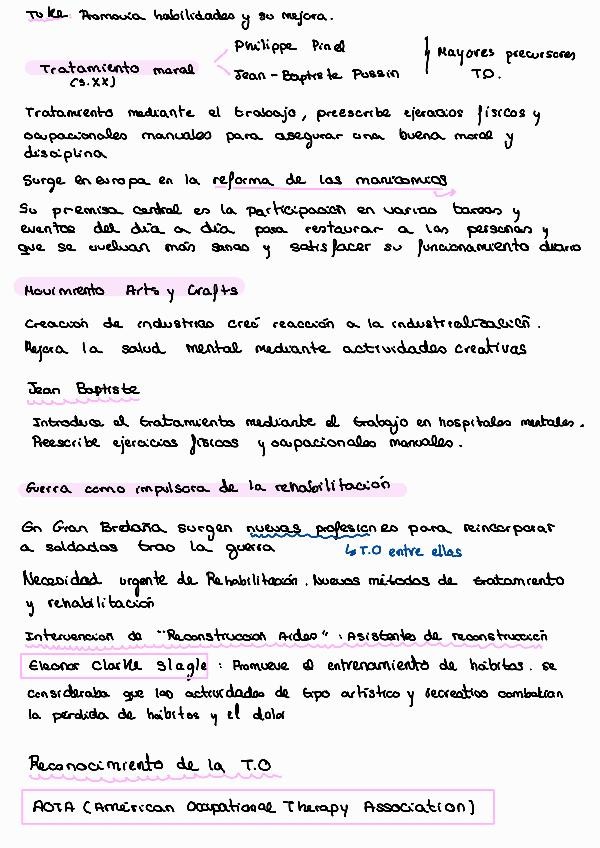 Tuke: Promovía habilidades y su mejora.
Philippe Pinel
Tratamiento moral
(s.XX)
Jean-Baptiste Pussin
Mayores precursores
T.O.
Tratamiento mediante el trabajo, preescribe ejercicios físicos y
ocupacionales manuales para asegurar una buena moral y
disciplina
Surge en europa en la reforma de los manicomios
Su premisa central es la participación en varias tareas y
eventos del día a día para restaurar a las personas y
que se vuelvan más sanas y satisfacer su funcionamiento diario
Movimiento Arts y Crafts
Creación de industrias creó reacción a la industrialización.
Mejora la salud mental mediante actividades creativas
Jean Baptiste
Introduce el tratamiento mediante el trabajo en hospitales mentales.
Preescribe ejercicios físicos y ocupacionales manuales.
Guerra como impulsora de la rehabilitación
En Gran Bretaña surgen nuevas profesiones para reincorporar
a soldados tras la guerra
↳ T.O entre ellas
Necesidad urgente de Rehabilitación. Nuevos métodos de tratamiento
y rehabilitación
Intervención de "Reconstruccion Aides": Asistentes de reconstrucción
Eleanor Clarke Slagle: Promueve el entrenamiento de hábitos. se
consideraba que las actividades de tipo artístico y recreativo combatían
la pérdida de hábitos y el dolor
Reconocimiento de la T.O
AOTA (American Ocupational Therapy Association)